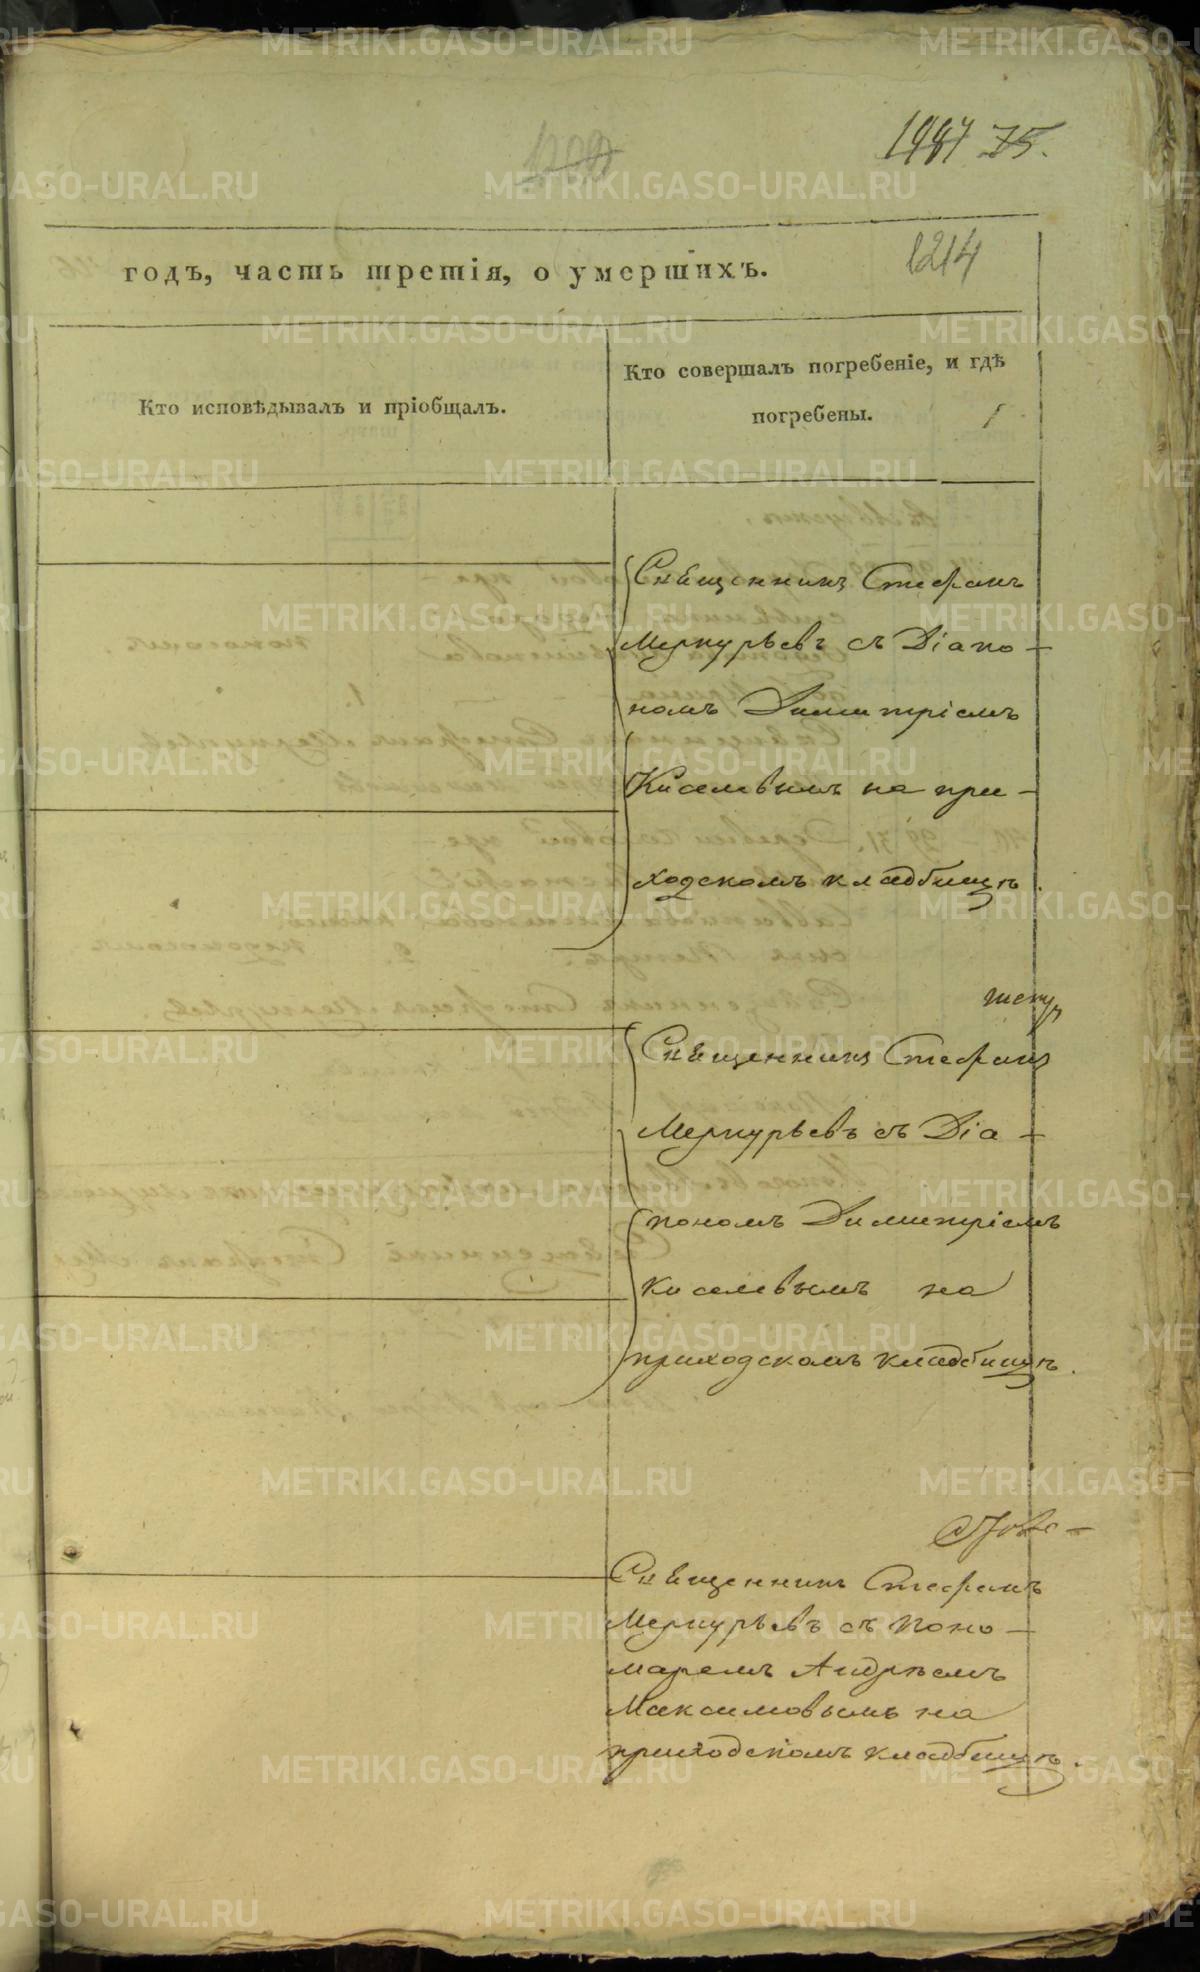 75.
1214
годъ, часть третія, о умершихъ.
Кто исповѣдывалъ и пріобщалъ.
Кто совершалъ погребеніе, и гдѣ
погребены.
Священникъ Стефанъ
Меркурьевъ съ Діако-
номъ Димитріемъ
Киселевымъ на при-
ходскомъ кладбищѣ.
Священникъ Стефанъ
Меркурьевъ съ Діа-
кономъ Димитріемъ
Киселевымъ на
приходскомъ кладбищѣ.
Священникъ Стефанъ
Меркурьевъ съ Поно-
маремъ Андрѣемъ
Максимовымъ на
приходскомъ кладбищѣ.
METRIKI.GASO-URAL.RU